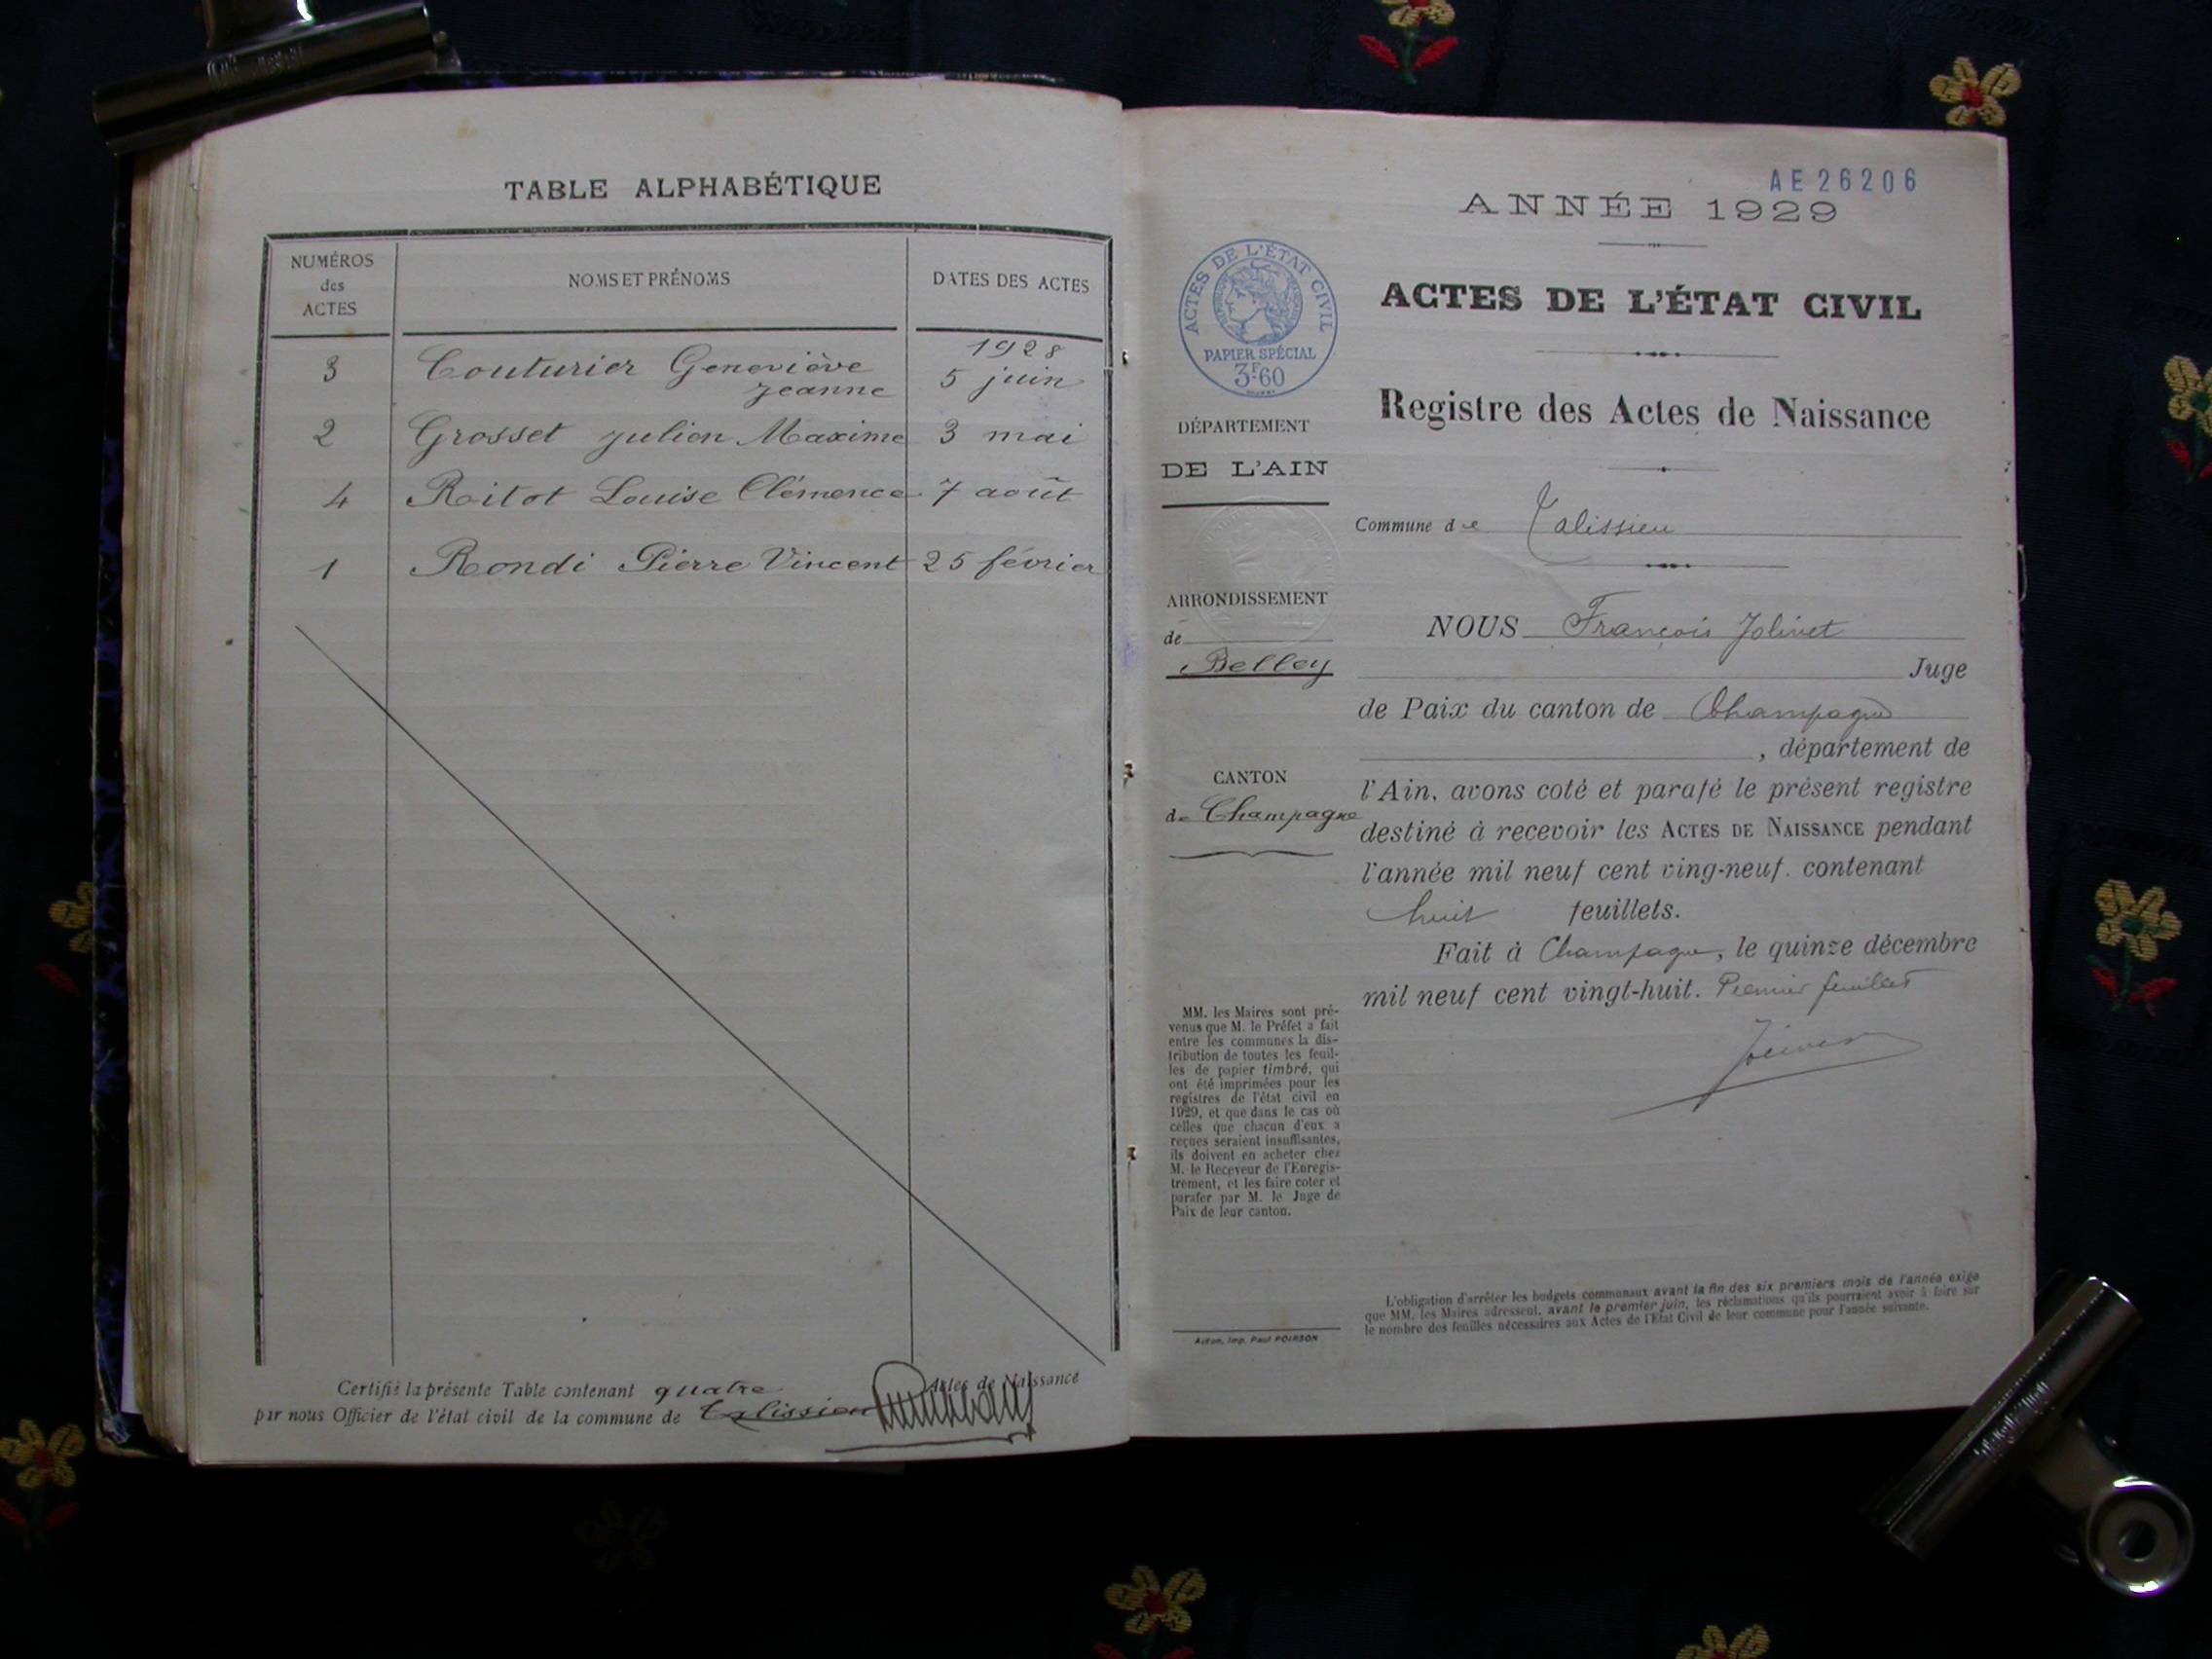 TABLE ALPHABÉTIQUE
NUMÉROS
des
ACTES
NOMS ET PRÉNOMS
DATES DES ACTES
1928
3 Couturier Geneviève 5 juin
Jeanne
2 Grosset Julien Maxime 3 mai
4 Ritot Louise Clémence 7 août
1 Rondi Pierre Vincent 25 février
Certifié la présente Table contenant quatre Actes de Naissance
par nous Officier de l'état civil de la commune de Talissieu
AE 26206
ANNÉE 1929
ACTES DE L'ÉTAT CIVIL
PAPIER SPÉCIAL
3F60
ACTES DE L'ÉTAT CIVIL
Registre des Actes de Naissance
DÉPARTEMENT
DE L'AIN
Commune de Talissieu
ARRONDISSEMENT
de
Belley
CANTON
de Champagne
NOUS François Jolivet
Juge
de Paix du canton de Champagne
, département de
l'Ain, avons coté et parafé le présent registre
destiné à recevoir les ACTES DE NAISSANCE pendant
l'année mil neuf cent ving-neuf. contenant
huit feuillets.
Fait à Champagne, le quinze décembre
mil neuf cent vingt-huit. Premier feuillet
MM. les Maires sont pré-
venus que M. le Préfet a fait
entre les communes la dis-
tribution de toutes les feuil-
les de papier timbré, qui
ont été imprimées pour les
registres de l'état civil en
1929, et que dans le cas où
celles que chacun d'eux a
reçues seraient insuffisantes,
ils doivent en acheter chez
M. le Receveur de l'Enregis-
trement, et les faire coter et
parafer par M. le Juge de
Paix de leur canton.
L'obligation d'arrêter les budgets communaux avant la fin des six premiers mois de l'année exige
que MM. les Maires adressent, avant le premier juin, les réclamations qu'ils pourraient avoir à faire sur
le nombre des feuilles nécessaires aux Actes de l'Etat Civil de leur commune pour l'année suivante.
Imp. Paul POIRSON